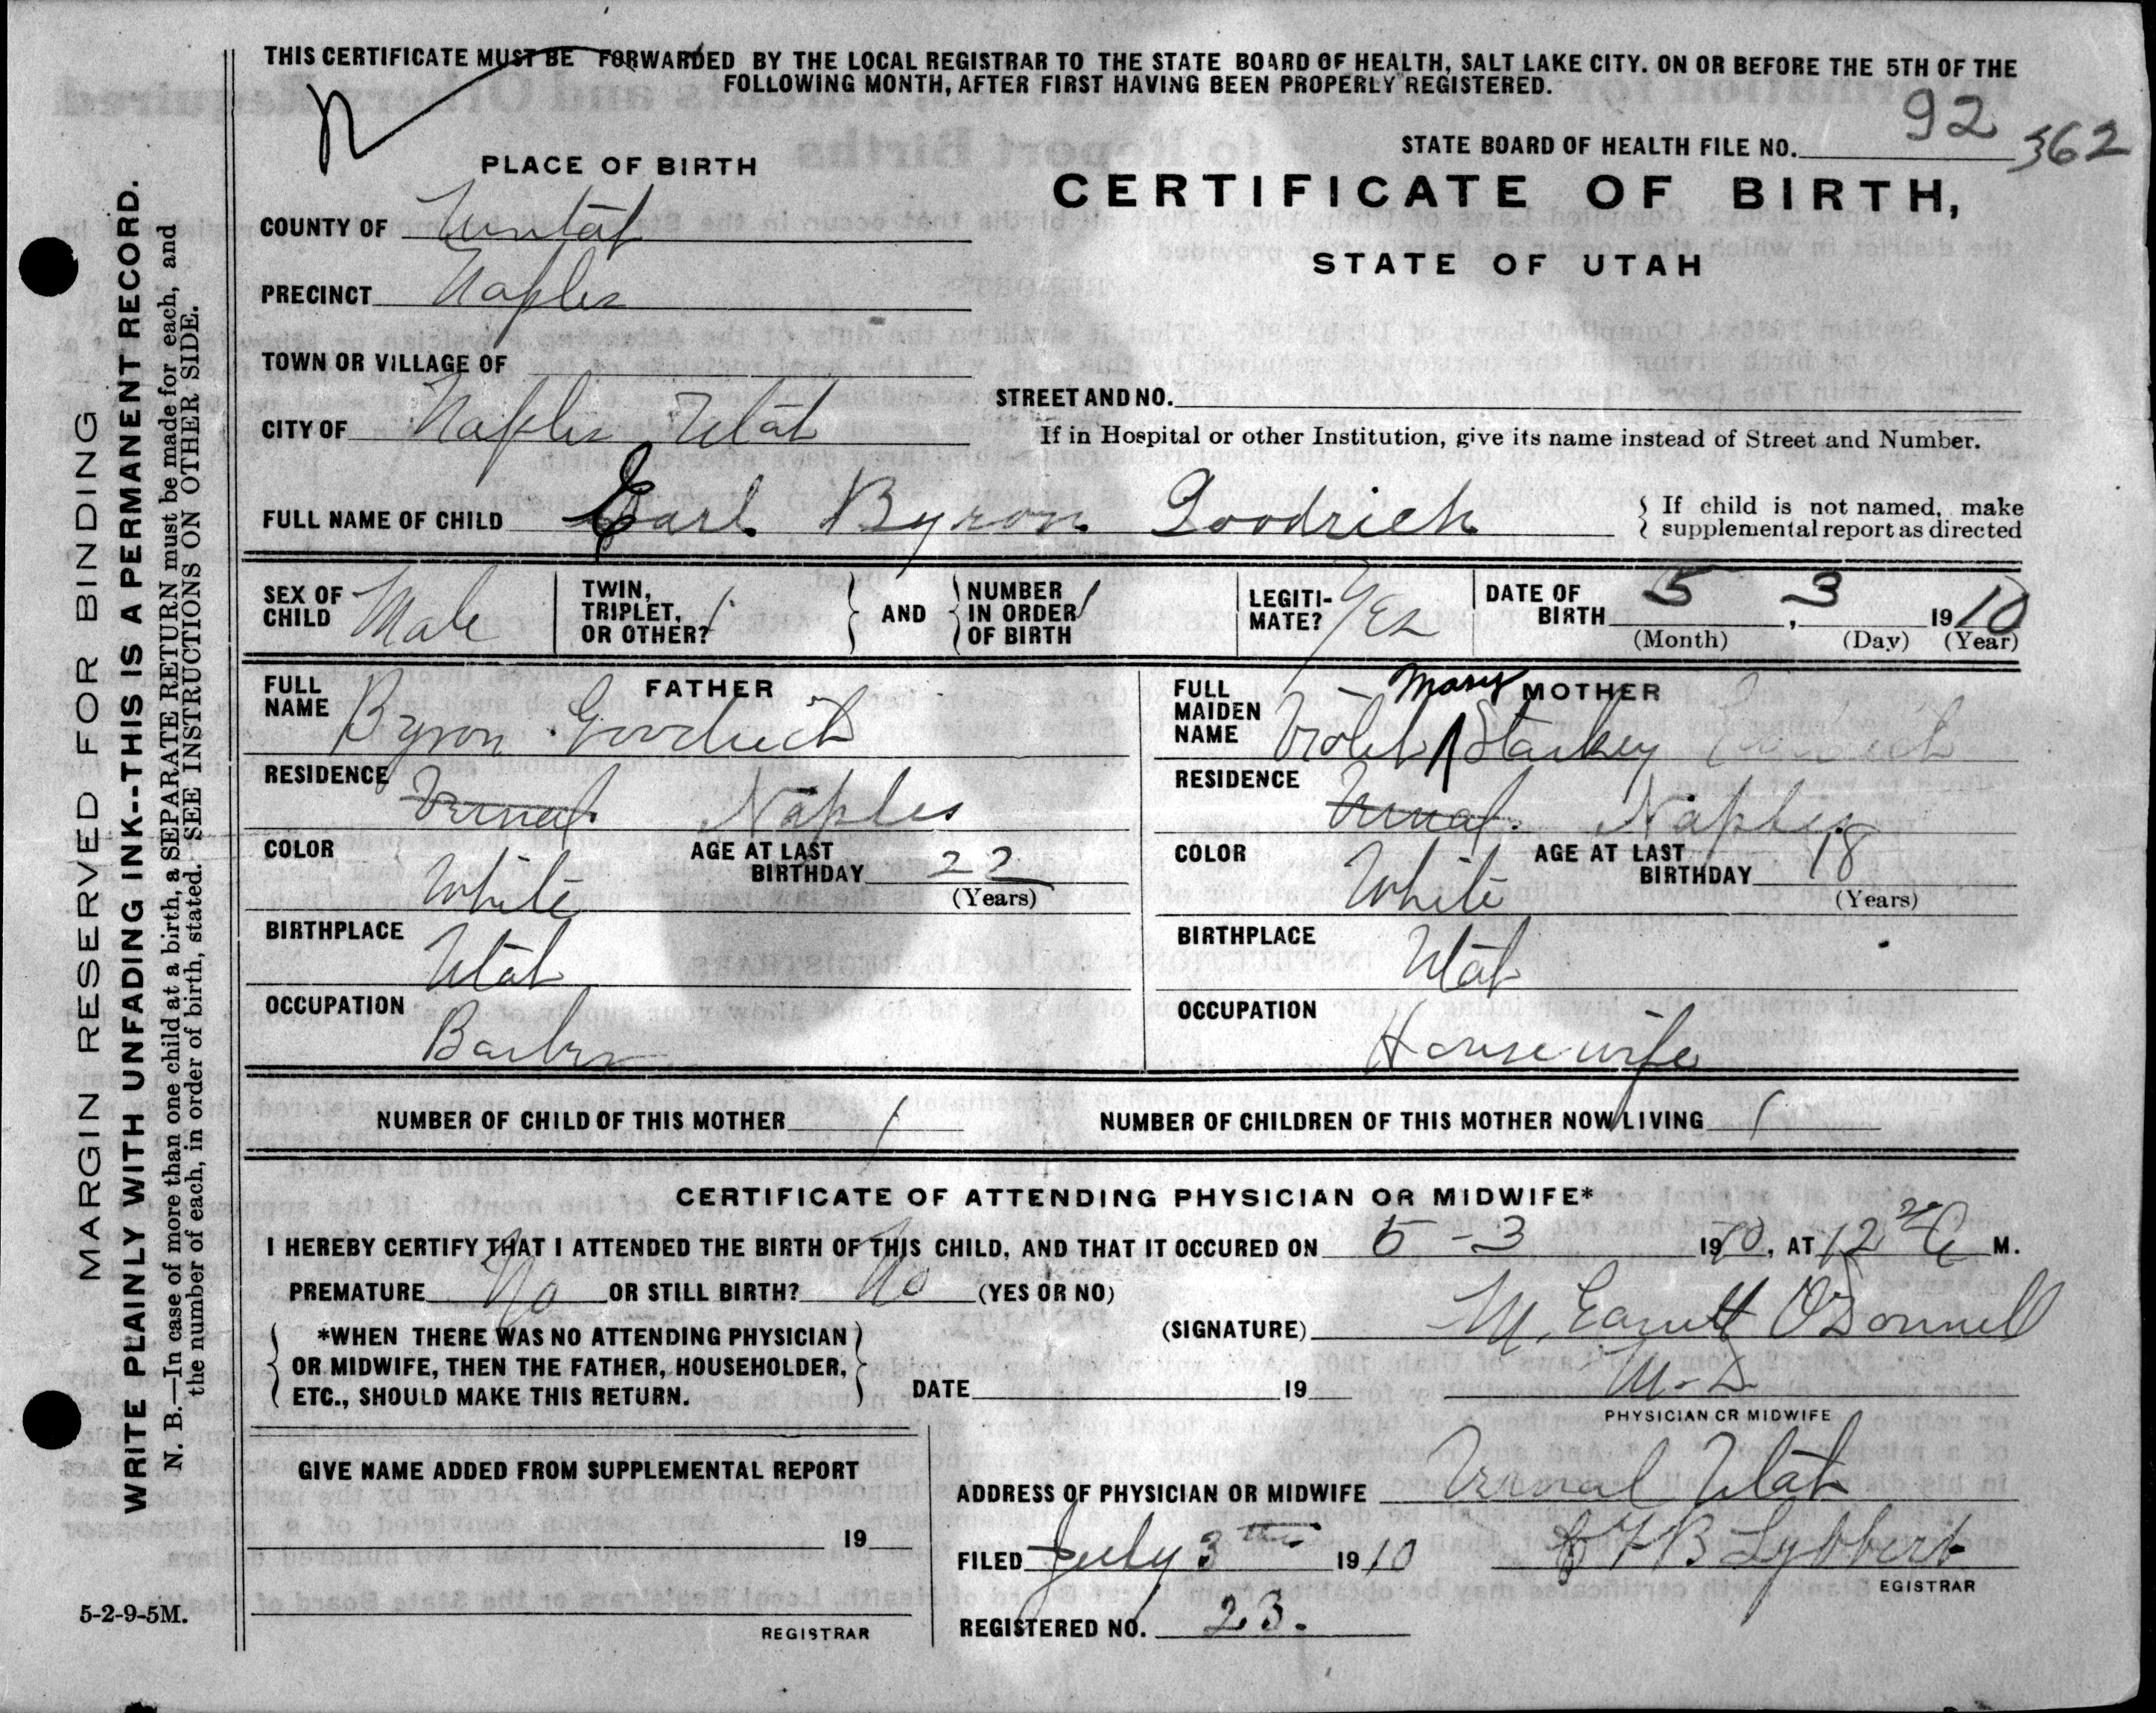 THIS CERTIFICATE MUST BE FORWARDED BY THE LOCAL REGISTRAR TO THE STATE BOARD OF HEALTH, SALT LAKE CITY. ON OR BEFORE THE 5TH OF THE
FOLLOWING MONTH, AFTER FIRST HAVING BEEN PROPERLY REGISTERED.
STATE BOARD OF HEALTH FILE NO. 92 362
PLACE OF BIRTH
CERTIFICATE OF BIRTH,
STATE OF UTAH
COUNTY OF Uintah
PRECINCT Naples
TOWN OR VILLAGE OF
STREET AND NO.
CITY OF Naples Utah
If in Hospital or other Institution, give its name instead of Street and Number.
FULL NAME OF CHILD Earl Byron Goodrich
If child is not named, make
supplemental report as directed
SEX OF CHILD Male
TWIN, TRIPLET, OR OTHER?
AND
NUMBER IN ORDER OF BIRTH
LEGITI-MATE? Yes
DATE OF BIRTH 5, 3 1910
(Month) (Day) (Year)
FATHER
FULL NAME Byron Goodrich
RESIDENCE Vernal Naples
COLOR White
AGE AT LAST BIRTHDAY 22
(Years)
BIRTHPLACE Utah
OCCUPATION Barber
MOTHER
FULL MAIDEN NAME Violet Mary Starkey
RESIDENCE Vernal. Naples
COLOR White
AGE AT LAST BIRTHDAY 18
(Years)
BIRTHPLACE Utah
OCCUPATION Housewife
NUMBER OF CHILD OF THIS MOTHER 1
NUMBER OF CHILDREN OF THIS MOTHER NOW LIVING 1
CERTIFICATE OF ATTENDING PHYSICIAN OR MIDWIFE*
I HEREBY CERTIFY THAT I ATTENDED THE BIRTH OF THIS CHILD, AND THAT IT OCCURED ON 5-3 1910, AT 12 M.
PREMATURE No OR STILL BIRTH? No (YES OR NO)
*WHEN THERE WAS NO ATTENDING PHYSICIAN
OR MIDWIFE, THEN THE FATHER, HOUSEHOLDER,
ETC., SHOULD MAKE THIS RETURN.
(SIGNATURE) M. O'Donnell
DATE 19 M.D
PHYSICIAN OR MIDWIFE
GIVE NAME ADDED FROM SUPPLEMENTAL REPORT
19
REGISTRAR
ADDRESS OF PHYSICIAN OR MIDWIFE Vernal Utah
FILED July 3 1910 B Lybbert
EGISTRAR
REGISTERED NO. 23.
5-2-9-5M.
MARGIN RESERVED FOR BINDING
WRITE PLAINLY WITH UNFADING INK--THIS IS A PERMANENT RECORD.
N. B.—In case of more than one child at a birth, a SEPARATE RETURN must be made for each, and
the number of each, in order of birth, stated. SEE INSTRUCTIONS ON OTHER SIDE.